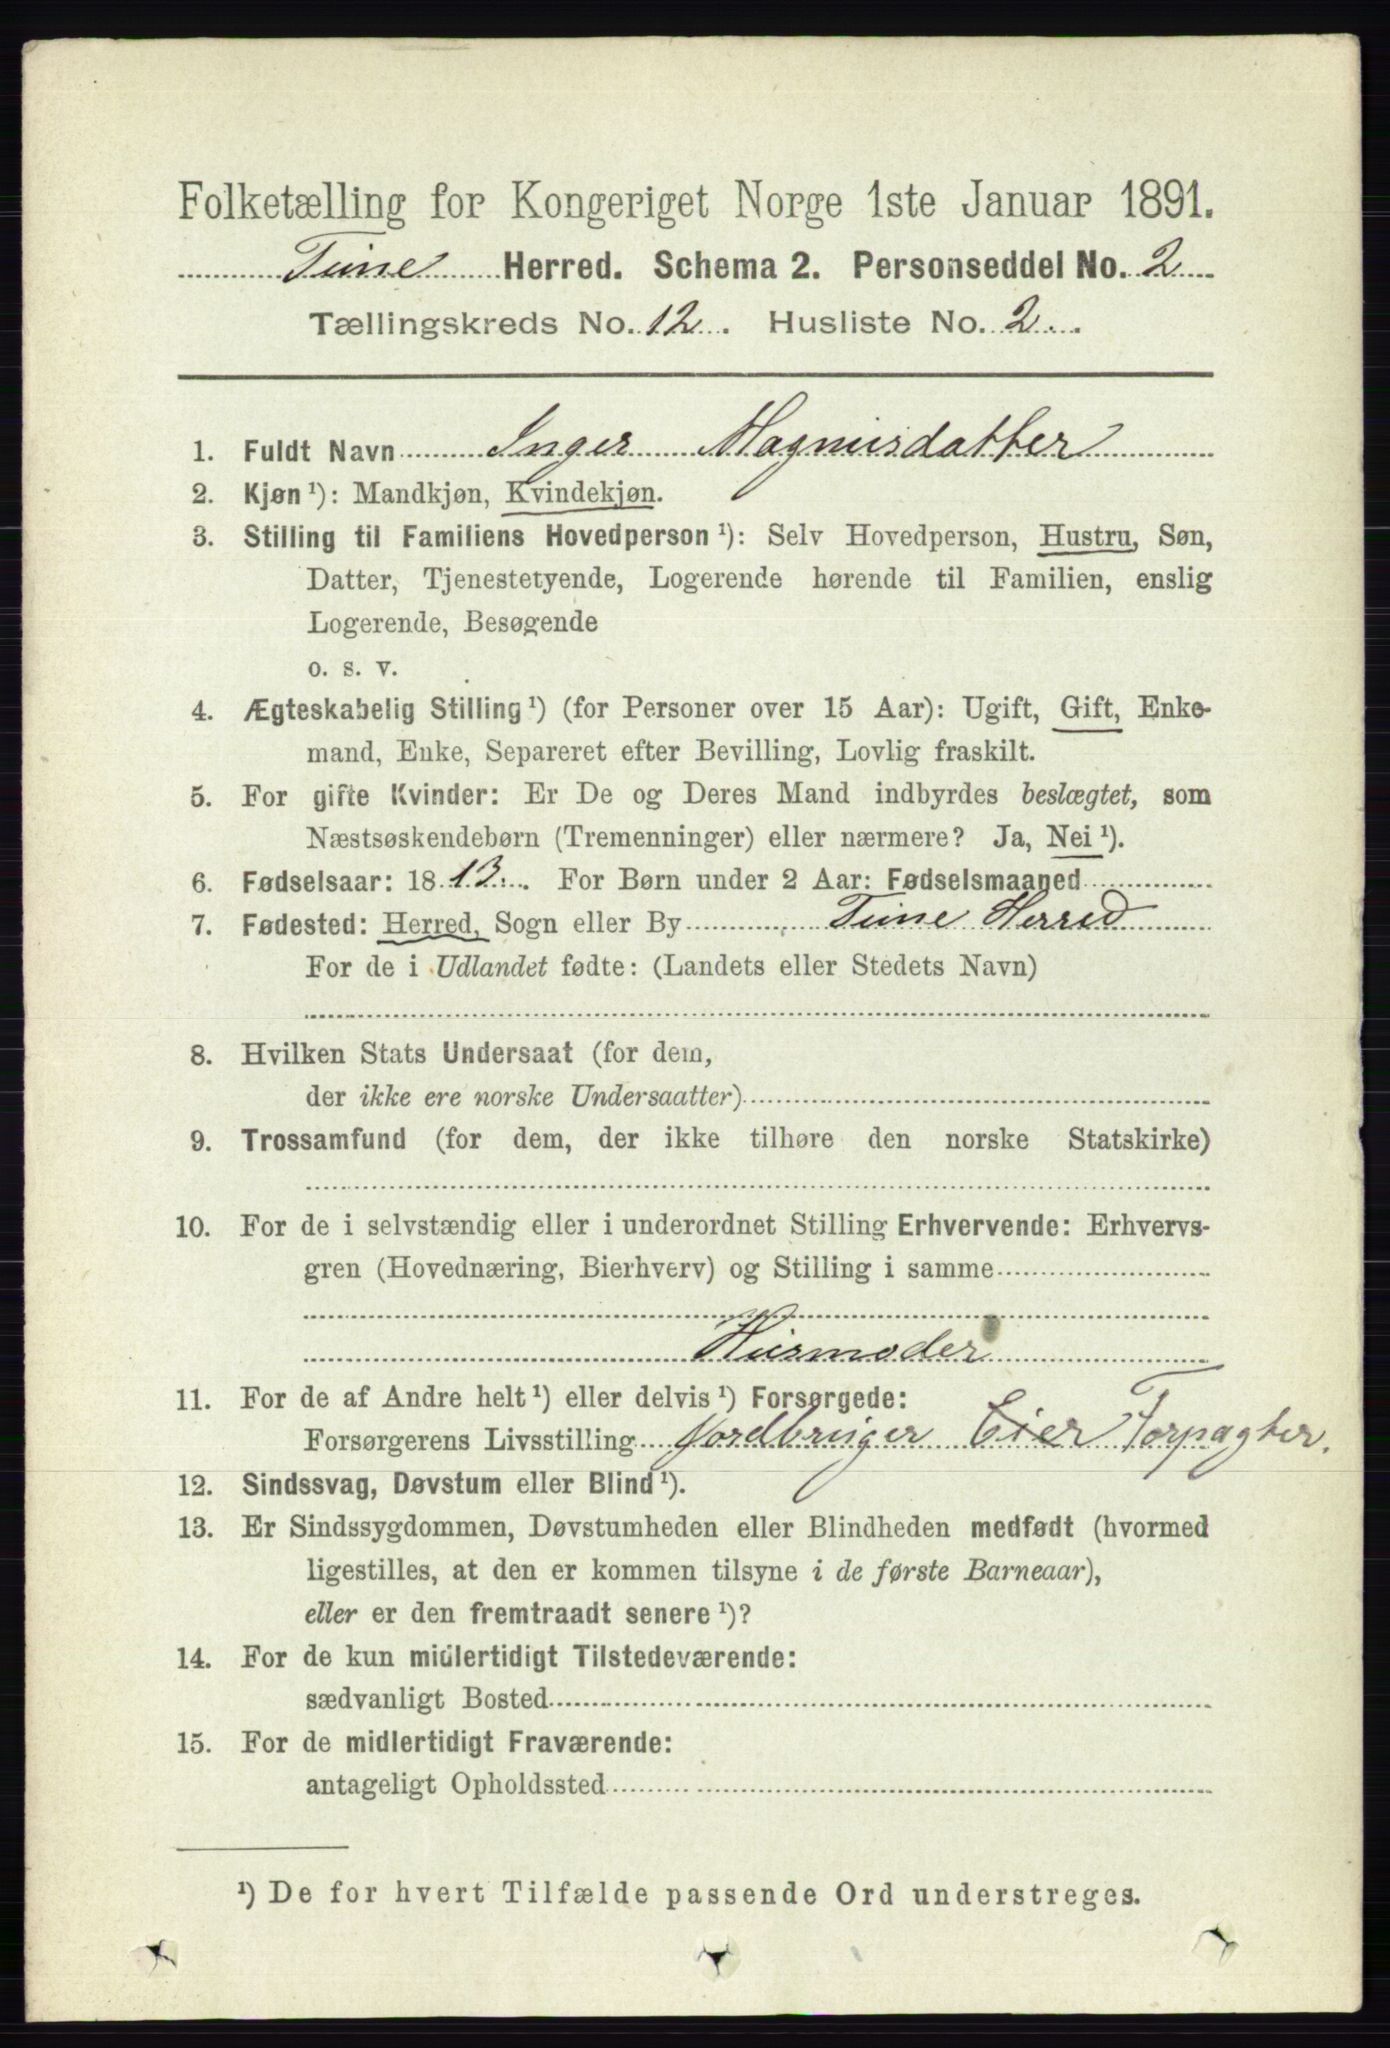 Folketælling for Kongeriget Norge 1ste Januar 1891.
Tune Herred. Schema 2. Personseddel No. 2
Tællingskreds No. 12. Husliste No. 2.
1. Fuldt Navn Inger Magnusdatter
2. Kjøn ¹): Mandkjøn, Kvindekjøn.
3. Stilling til Familiens Hovedperson ¹): Selv Hovedperson, Hustru, Søn,
Datter, Tjenestetyende, Logerende hørende til Familien, enslig
Logerende, Besøgende
o. s. v.
4. Ægteskabelig Stilling ¹) (for Personer over 15 Aar): Ugift, Gift, Enke-
mand, Enke, Separeret efter Bevilling, Lovlig fraskilt.
5. For gifte Kvinder: Er De og Deres Mand indbyrdes beslægtet, som
Næstsøskendebørn (Tremenninger) eller nærmere? Ja, Nei ¹).
6. Fødselsaar: 1813. For Børn under 2 Aar: Fødselsmaaned
7. Fødested: Herred, Sogn eller By Tune Herred
For de i Udlandet fødte: (Landets eller Stedets Navn)
8. Hvilken Stats Undersaat (for dem,
der ikke ere norske Undersaatter)
9. Trossamfund (for dem, der ikke tilhøre den norske Statskirke)
10. For de i selvstændig eller i underordnet Stilling Erhvervende: Erhvervs-
gren (Hovednæring, Bierhverv) og Stilling i samme
Husmoder
11. For de af Andre helt ¹) eller delvis ¹) Forsørgede:
Forsørgerens Livsstilling Jordbruger Eier Forpagter.
12. Sindssvag, Døvstum eller Blind ¹).
13. Er Sindssygdommen, Døvstumheden eller Blindheden medfødt (hvormed
ligestilles, at den er kommen tilsyne i de første Barneaar),
eller er den fremtraadt senere ¹)?
14. For de kun midlertidigt Tilstedeværende:
sædvanligt Bosted
15. For de midlertidigt Fraværende:
antageligt Opholdssted
¹) De for hvert Tilfælde passende Ord understreges.